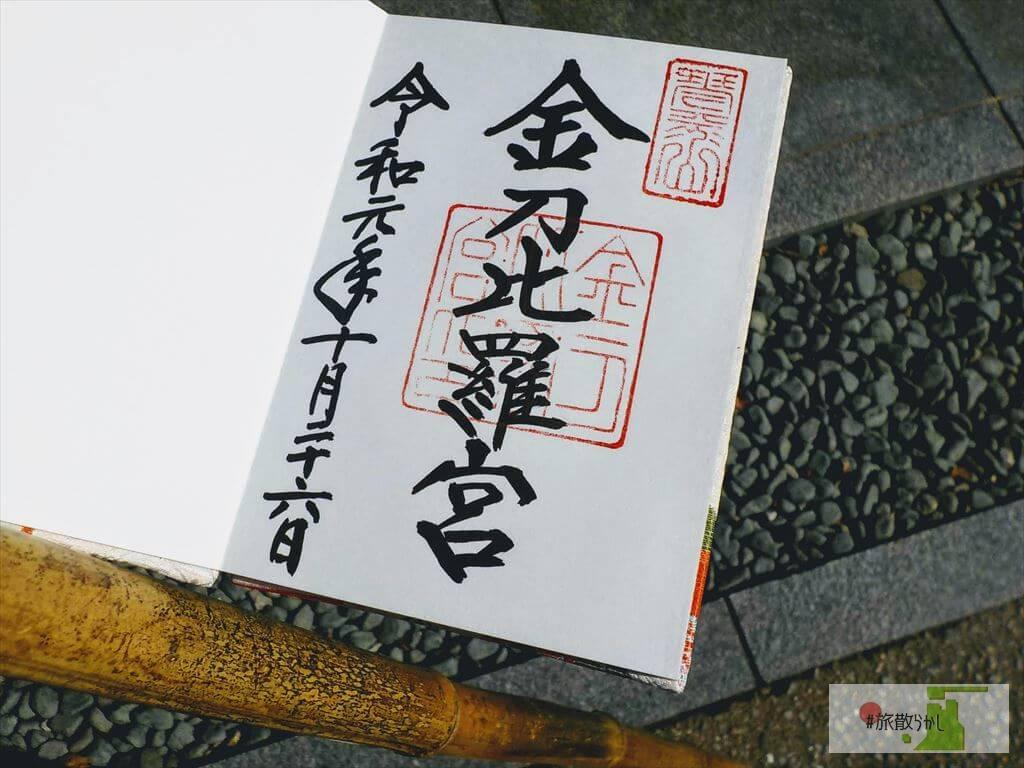 金刀比羅宮
令和元年十月二十六日
#旅散らかし